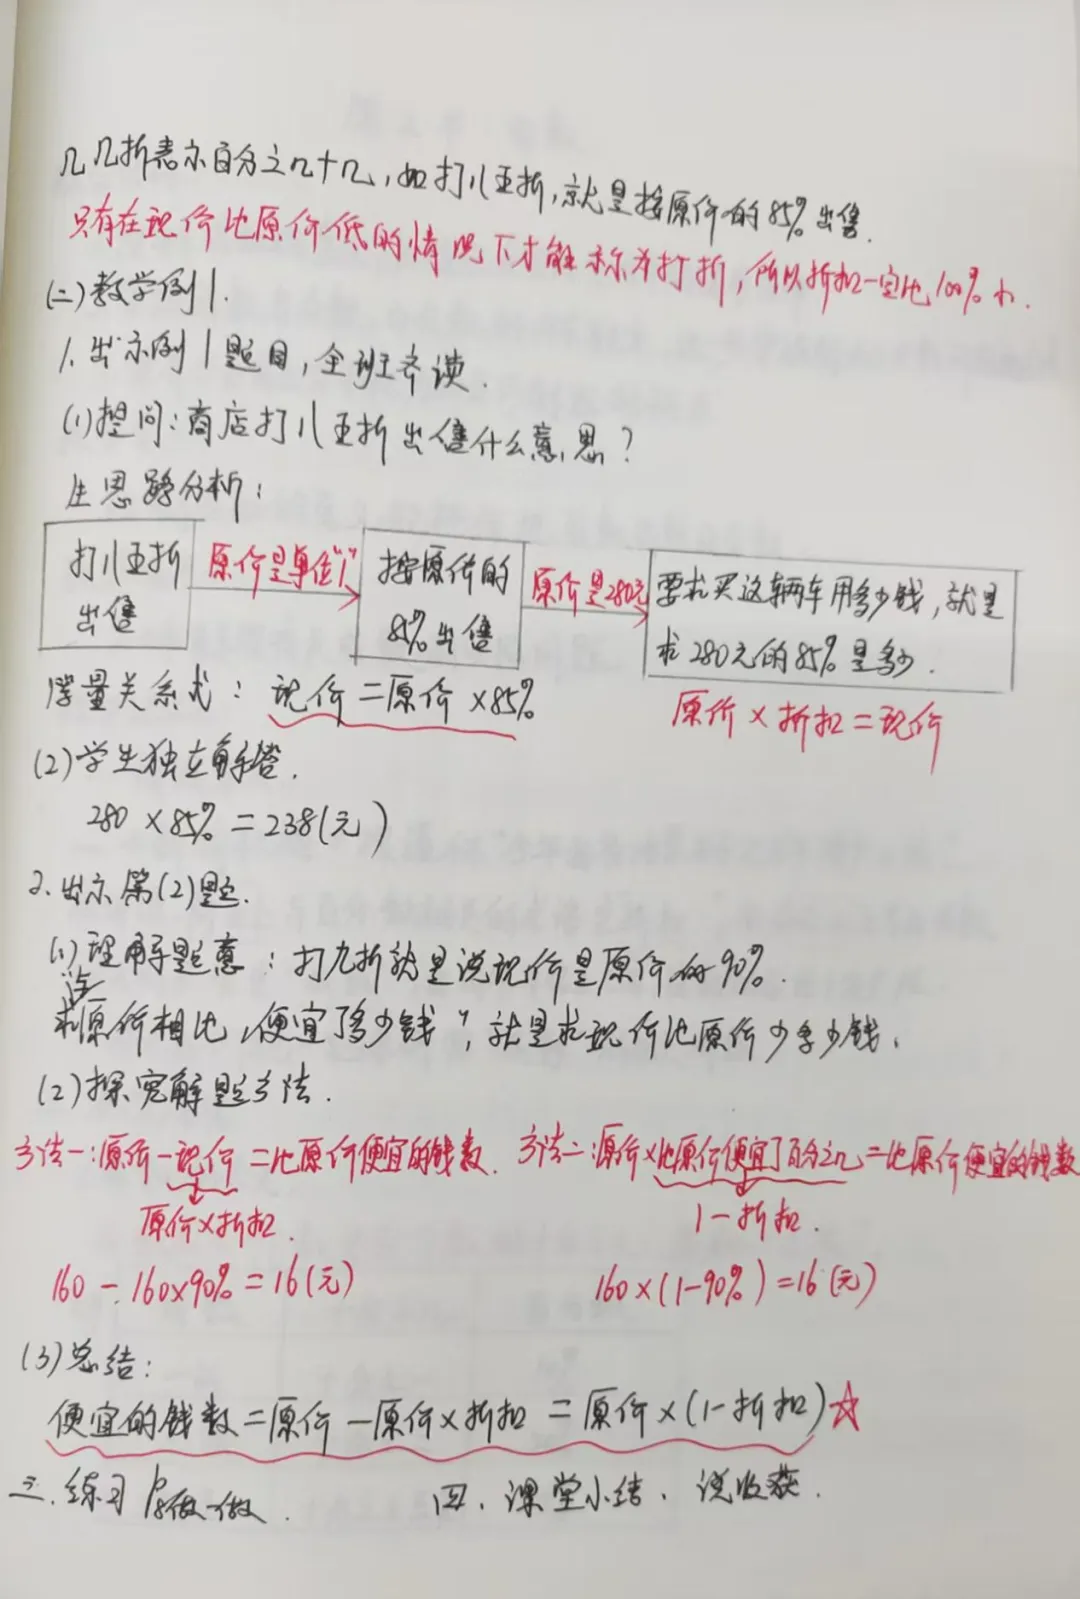 几几折表示百分之几十几,如打八五折,就是按原价的85%出售.
只有在现价比原价低的情况下才能称为打折,所以折扣一定比100%小.
(二)教学例1.
1.出示例1题目,全班齐读.
(1)提问:商店打八五折出售什么意思?
生思路分析:
打八五折出售
原价是单位"1"
按原价的85%出售
原价是280元
要求买这辆车用多少钱,就是求280元的85%是多少.
量关系式:现价=原价×85%
原价×折扣=现价
(2)学生独立解答.
280×85%=238(元)
2.出示第(2)题.
(1)理解题意:打九折就是说现价是原价的90%.
求原价相比,便宜了多少钱",就是求现价比原价少多少钱.
(2)探究解题方法.
方法一:原价-现价=比原价便宜的钱数. 方法二:原价×比原价便宜了百分之几=比原价便宜的钱数
原价×折扣. 1-折扣.
160-160×90%=16(元) 160×(1-90%)=16(元)
(3)总结:
便宜的钱数=原价-原价×折扣=原价×(1-折扣)☆
三.练习 P8做一做. 四.课堂小结.说收获.